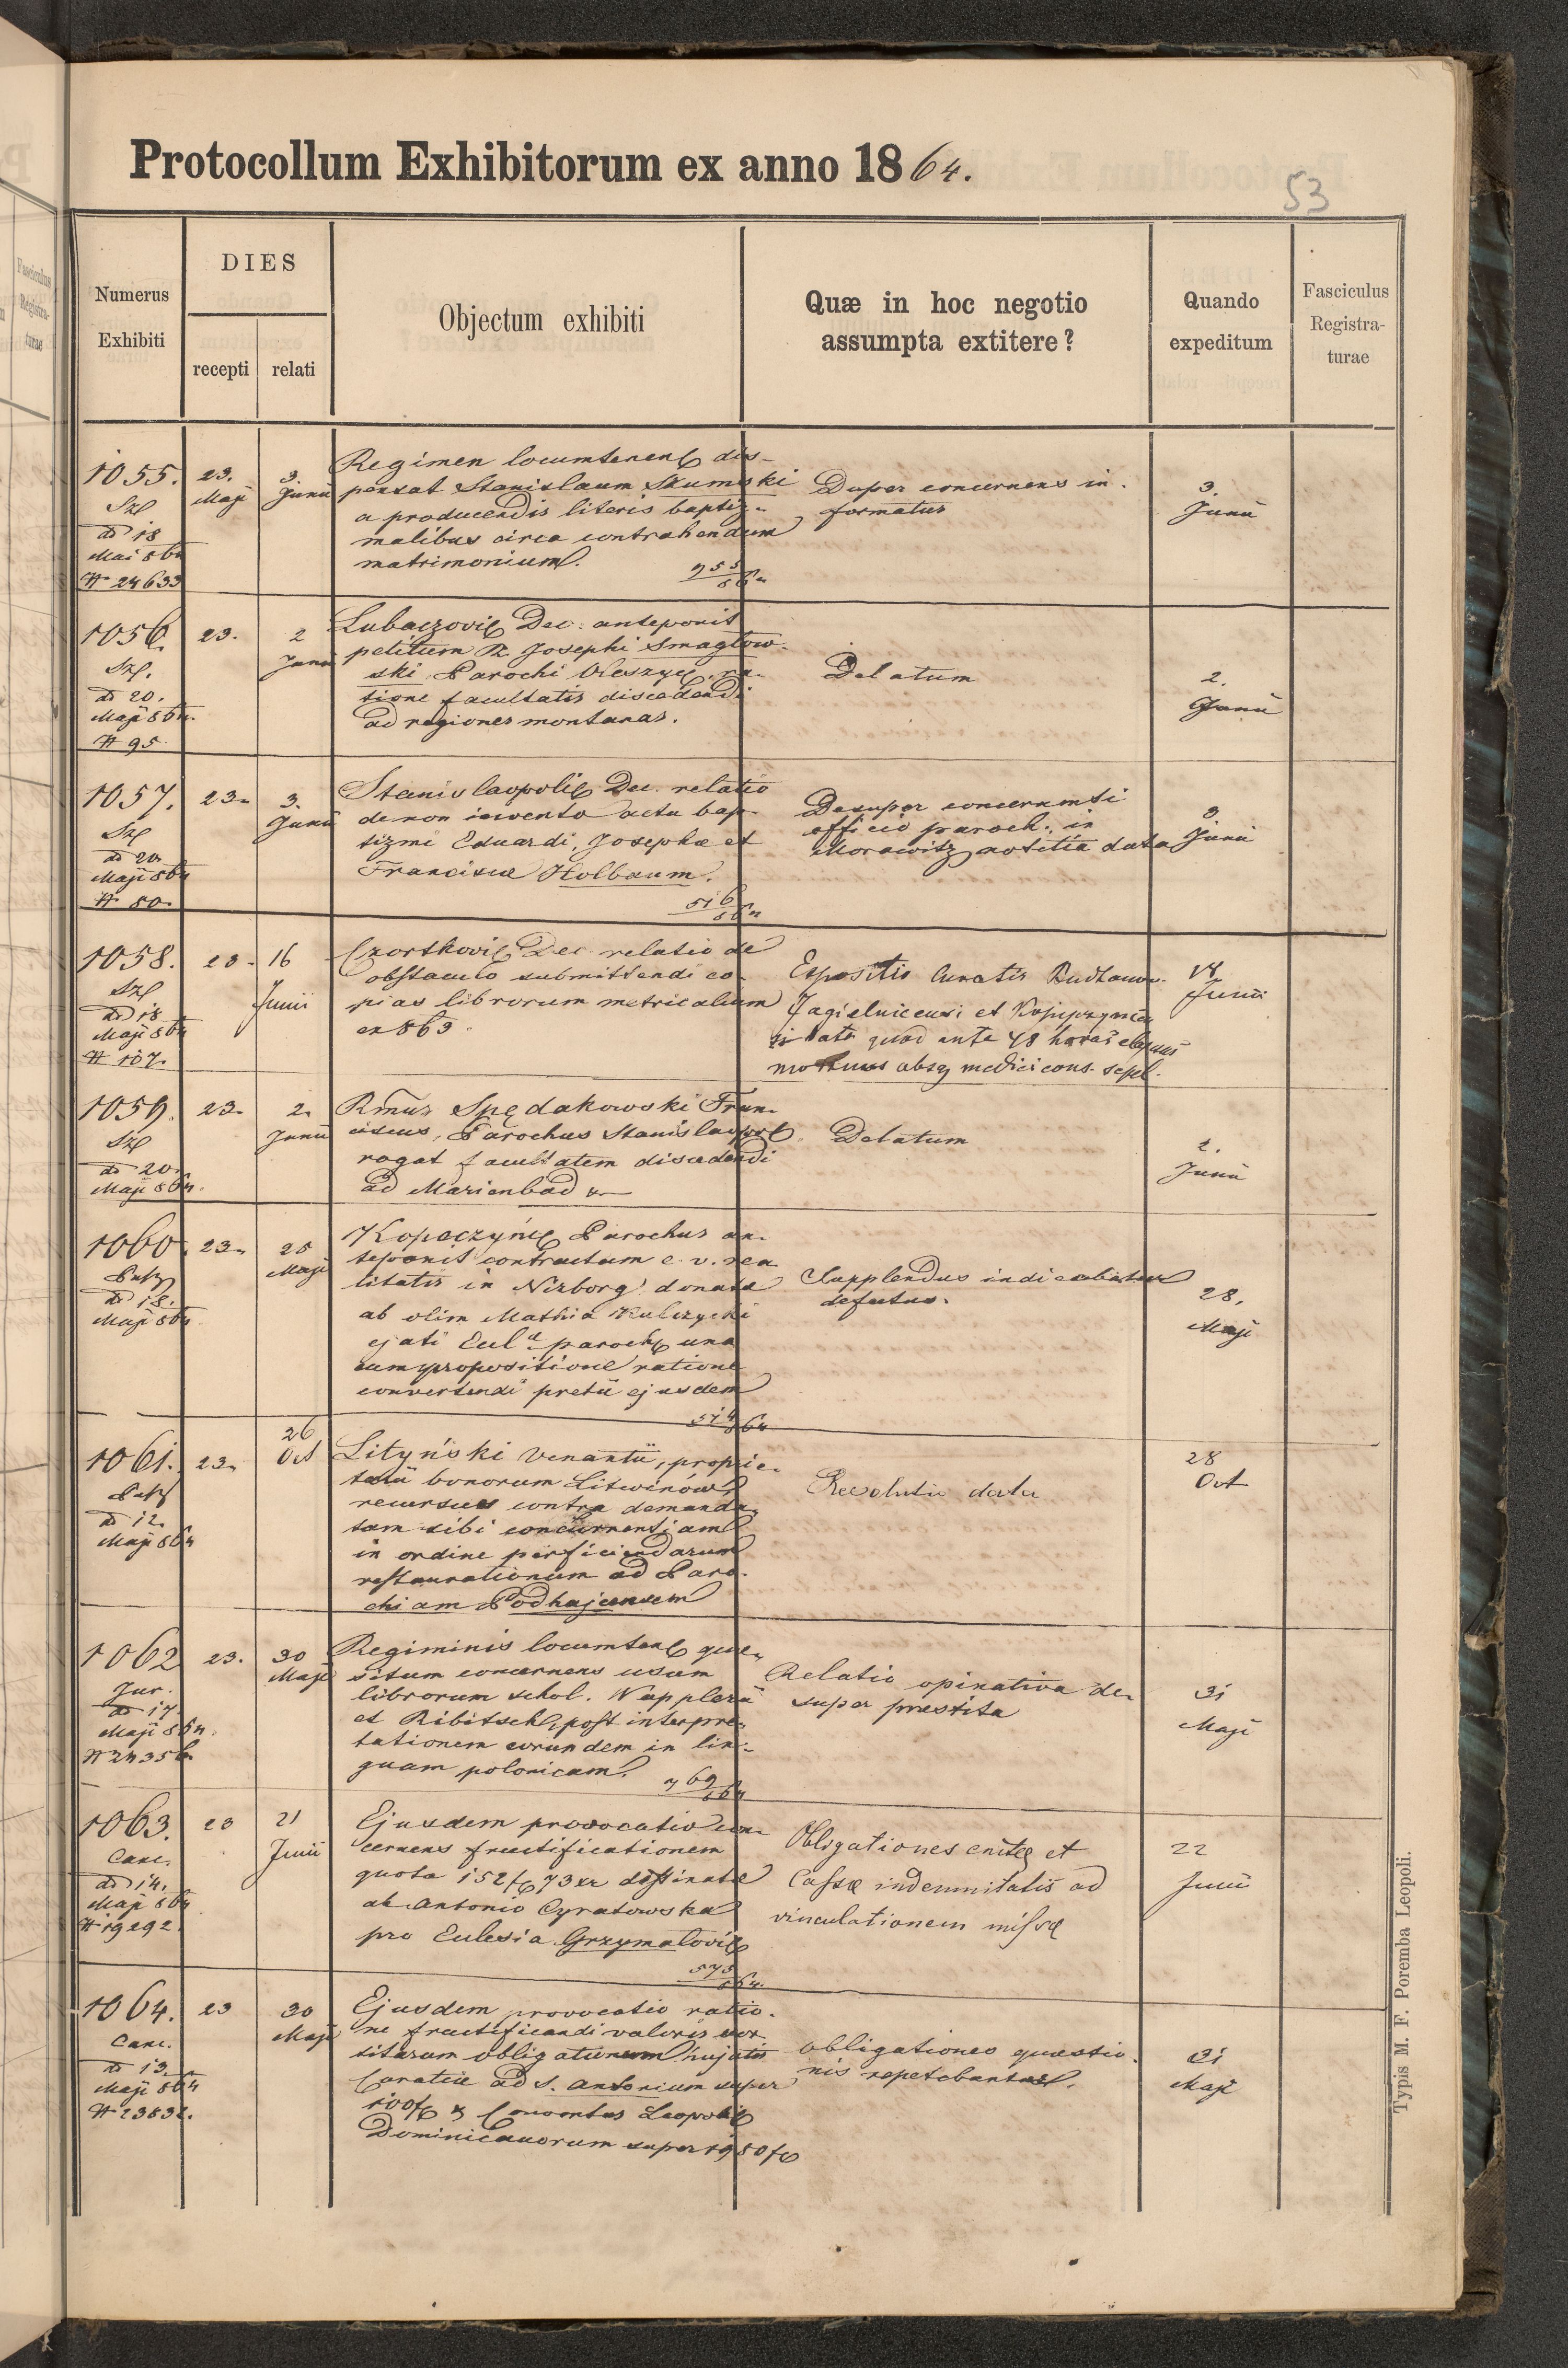 Protocollum Exhibitorum ex anno 1864.
53
Numerus Exhibiti
DIES
recepti
relati
Objectum exhibiti
Quæ in hoc negotio
assumpta extitere?
Quando
expeditum
Fasciculus
Registra-
turae
1055.
Szl
dd 18
Mai 864
N 24633
23.
Maji
3.
Junii
Regimen locumtenens dis-
pensat Stanislaum Skumski
a producendis literis baptiz-
malibus circa contrahendum
matrimonium.
955/864
Super concernens in-
formatus
3.
Junii
1056.
Szl.
dd 20.
Maji 864.
N 95.
23.
2
Junii
Lubaczovie Dec. anteponit
petitum R. Josephi Smagłow-
ski Parochi Oleszyc. ra-
tione facultatis discedendi
ad regiones montanas.
Delatum
2.
Junii
1057.
Szl
dd 20.
Maji 864
N 80.
23.
3.
Junii
Stanislaopolis Dec. relatio
de non invento actu bap-
tizmi Eduardi, Josephæ et
Franciscæ Holbaum.
516/864
Desuper concernenti
officio paroch. in
Morawitz notitia data
3.
Junii
1058.
Szl
dd 18
Maji 864
N 107.
23.
16
Junii
Czortkovie Dec. relatio de
obstaculo submittendi co-
pias librorum metricalium
ex 863.
Expositio Curatis Budzanow.
Jagielnicensi et
quod ante 48 horas
mortuus absq medici cons. sepel.
18
Junii
1059.
Szl
dd 20.
Maji 864.
23.
2.
Junii
Rmus Spędakowski Fran-
ciscus, Parochus Stanislaopol
rogat facultatem discedendi
ad Marienbad
Delatum
2.
Junii
1060.
dd 18.
Maji 864
23.
25
Maji
Kopeczyńe Parochus an-
teponit contractum e. v. rea-
litatis in Nizborg donata
ab olim Mathia Kulczycki
ejati Eccl. paroch una
cum propositione ratione
convertendi pretii ejusdem
514/864
Supplendus indicabatur
defectus.
28.
Maji
1061.
dd 12.
Maji 864
23.
26
Oct
Lityński Venantii, proprie-
tarii bonorum Litwinów
recursus contra demanda-
tam sibi concurrentiam
in ordine perficiendarum
restaurationum ad Paro-
chiam Podhajcensem
Resolutio data
28
Oct
1062
Jur.
dd 17.
Maji 864.
N 24356.
23.
30
Maji
Regiminis locumten quæ-
situm concernens usum
librorum schol. Napplera
et Ribitsch post interpre-
tationem eorundem in lin-
guam polonicam.
769/864
Relatio opinativa de-
super prestita
31
Maji
1063.
Canc.
dd 14.
Maji 864
N 19292.
23
21
Junii
Ejusdem provocatio con-
cernens fructificationem
quota 152 f 73 xr destinata
ab Antonio Cyratowska
pro Eclesia Grzymalovie
575/864.
Obligationes et
Cassæ indemnitatis ad
vinculationem missæ
22
Junii
1064.
Canc.
dd 13.
Maji 864
N 23832.
23
30
Maji
Ejusdem provocatio ratio-
ne fructificandi valoris sor-
titarum obligationum hujatis
Curatiæ ad S. Antonium super
100 f & Conventus Leopolis
Dominicanorum super 1980 f
obligationes quæstio-
nis repetebantur.
31
Maji
Typis M. F. Poremba Leopoli.